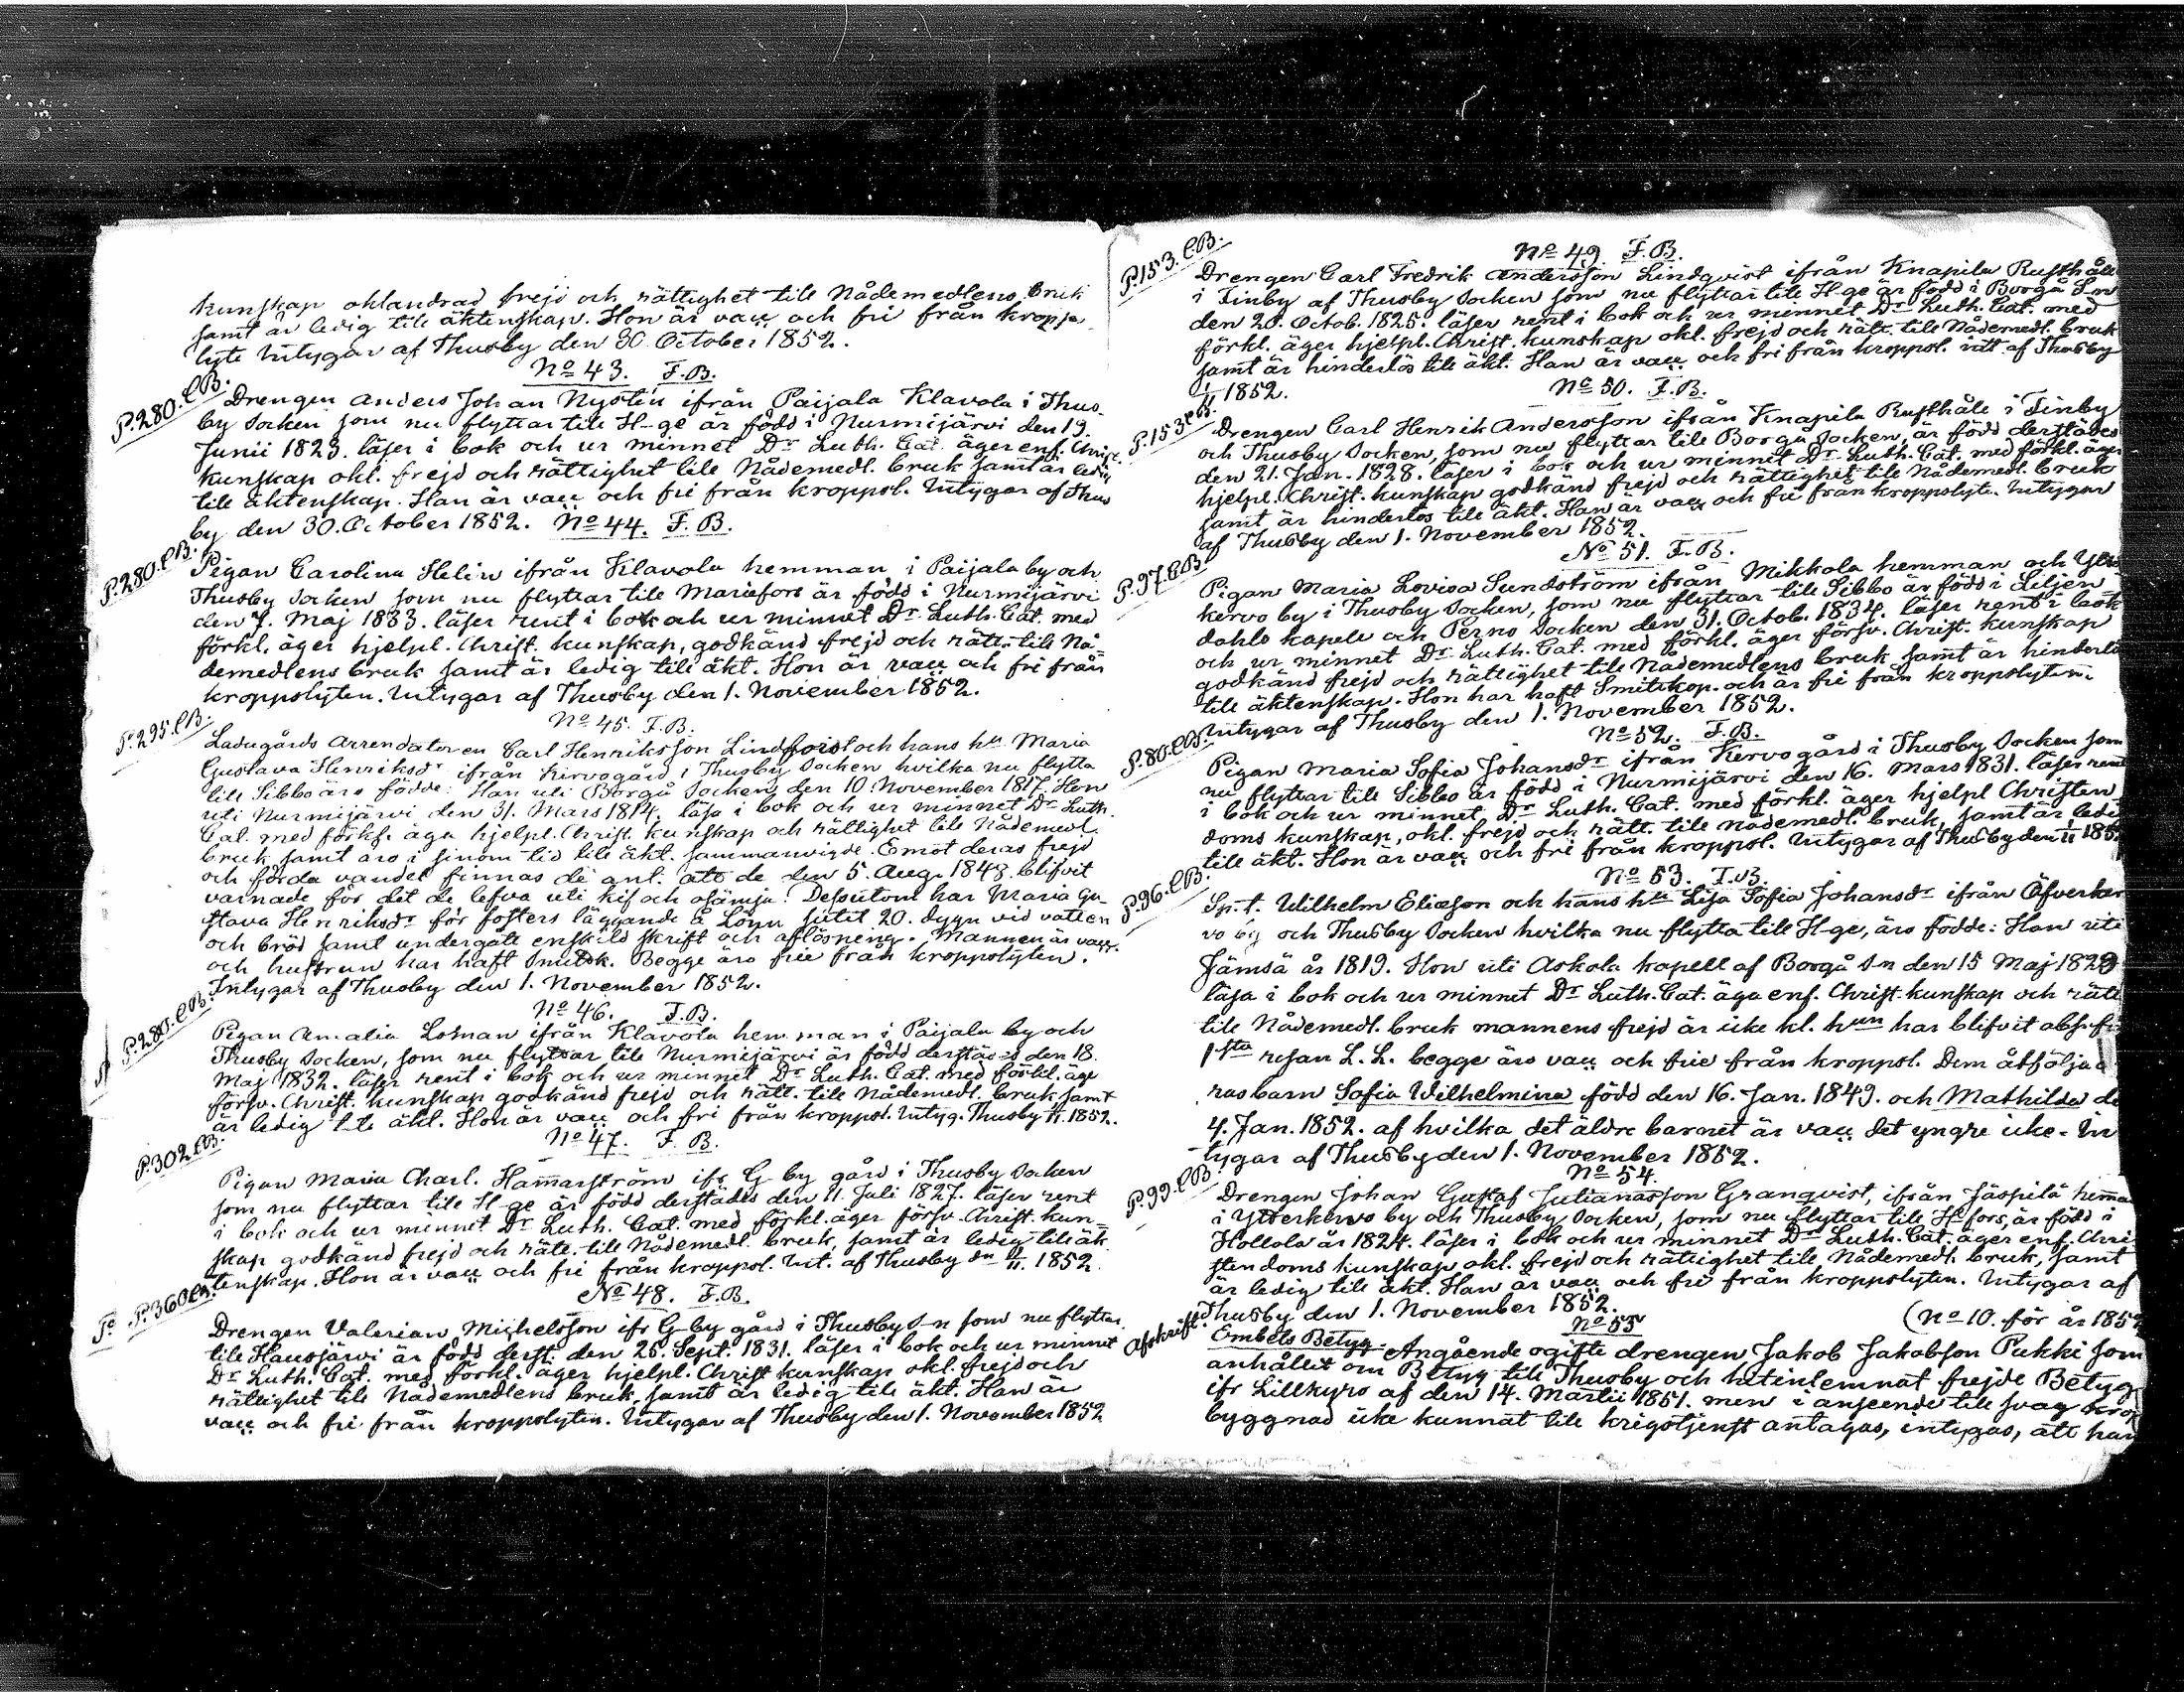 kunskap oklandrad frejd och rättighet till Nådemedlens bruk
samt är ledig till äktenskap. Hon är vacc. och fri från kropps
lyte Intygar af Thusby den 30 October 1852.
No 43. F.B.
P.280.C.B.
Drengen Anders Johan Nystén ifrån Paijala Klavola i Thus-
by Socken som nu flyttar till H-ge är född i Nurmijärvi den 19.
Junii 1823. läser i bok och ur minnet Dr Luth. Cat. äger enf. Christ.
kunskap okl. frejd och rättighet till Nådemedl. bruk samt är ledig
till äktenskap. Han är vacc. och fri från kroppsl. Intygar af Thus
by den 30. October 1852. No 44. F.B.
P.280.C.B.
Pigan Carolina Helin ifrån Klavola hemman i Paijala by och
Thusby Socken som nu flyttar till Mariefors är född i Nurmijärvi
den 7. Maj 1833. läser rent i bok och ur minnet Dr Luth. Cat. med
förkl. äger hjelpl. Christ. kunskap, godkänd frejd och rätt. till Nå-
demedlens bruk samt är ledig till äkt. Hon är vacc. och fri från
kroppslyten. Intygar af Thusby den 1. November 1852.
No 45. F.B.
P.295.C.B.
Ladugårds Arrendatoren Carl Henriksson Lindfors och hans hu Maria
Gustava Henriksdr ifrån Kervogård i Thusby Socken hvilka nu flytta
till Sibbo äro födde: Han uti Borgå Socken den 10. November 1817. Hon
uti Nurmijärvi den 31. Mars 1814. läsa i bok och ur minnet Dr Luth.
Cat. med förkl. äga hjelpl. Christ. kunskap och rättighet till Nådemedl.
bruk samt äro i sinom tid till äkt. sammanvigde. Emot deras frejd
och förda vandel finnas de ant. att de den 5. Aug. 1848. blifvit
varnade för det de lefva uti kif och osämja. Dessutom har Maria Gu-
stava Henriksdr för fosters läggande å Lönn sutit 20. dygn vid vatten
och bröd samt undergått enskild skrift och aflösning. Mannen är vacc.
och hustrun har haft Smitk. Begge äro frie från kroppslyten.
Intygar af Thusby den 1. November 1852.
No 46. F.B.
P.280.C.B.
Pigan Amalia Loman ifrån Klavola hemman i Paijala by och
Thusby Socken, som nu flyttar till Nurmijärvi är född derstädes den 18.
Maj 1832. läser rent i bok och ur minnet Dr Luth. Cat. med förkl. äge
försv. Christ. kunskap godkänd frejd och rätt. till Nådemedl. bruk samt
är ledig till äkt. Hon är vacc. och fri från kroppsl. Intyg. Thusby 1/11. 1852.
No 47. F.B.
P.302.C.B.
Pigan Maria Charl. Hammarström ifr G-by gård i Thusby Socken
som nu flyttar till H-ge är född derstädes den 11. Juli 1827. läser rent
i bok och ur minnet Dr Luth. Cat. med förkl. äger försv. Christ. kun-
skap godkänd frejd och rätt. till Nådemedl. bruk, samt är ledig till äk
tenskap. Hon är vacc. och fri från kroppsl. Int. af Thusby dn 1/11. 1852.
No 48. F.B.
P.360.
Drengen Valerian Michelsson ifr G-by gård i Thusby S-n som nu flyttar
till Hausjärvi är född derst. den 26. Sept. 1831. läser i bok och ur minnet
Dr Luth. Cat. med förkl. äger hjelpl. Christ kunskap okl. frejd och
rättighet till Nådemedlens bruk, samt är ledig till äkt. Han är
vacc. och fri från kroppslyten. Intygar af Thusby den 1. November 1852
No 49 F.B.
P.153.C.B.
Drengen Carl Fredrik Andersson Lindqvist ifrån Knapila Rusthåll
i Finby af Thusby Socken som nu flyttar till H-ge är född i Borgå S-n
den 20. Octob. 1825. läser rent i bok och ur minnet Dr Luth. Cat. med
förkl. äger hjelpl. Christ. kunskap okl. frejd och rätt. till Nådemedl. bruk
samt är hinderlös till äkt. Han är vacc. och fri från kroppsl. int. af Thusby
1/11 1852.
No 50. F.B.
P.153.C.B.
Drengen Carl Henrik Andersson ifrån Knapila Rusthåll i Finby
och Thusby Socken, som nu flyttar till Borgå Socken, är född derstädes
den 21. Jan. 1828. läser i bok och ur minnet Dr Luth. Cat. med förkl. äger
hjelpl. Christ. kunskap godkänd frejd och rättighet till Nådemedl. bruk
samt är hinderlös till äkt. Han är vacc. och fri från kroppslyte. Intygar
af Thusby den 1. November 1852.
No 51. F.B.
P.97.C.B.
Pigan Maria Lovisa Sundström ifrån Mikkola hemman och Ytter
kervo by i Thusby Socken, som nu flyttar till Sibbo är född i Liljen-
dahls kapell och Perno Socken den 31. Octob. 1834. läser rent i bok
och ur minnet Dr Luth. Cat. med förkl. äger försv. Christ. kunskap
godkänd frejd och rättighet till Nådemedlens bruk samt är hinderlö
till äktenskap. Hon har haft Smitkop. och är fri från kroppslyten.
Intygar af Thusby den 1. November 1852.
No 52. F.B.
P.80.C.B.
Pigan Maria Sofia Johansdr ifrån Kervogård i Thusby Socken som
nu flyttar till Sibbo är född i Nurmijärvi den 16. Mars 1831. läser rent
i bok och ur minnet, Dr Luth. Cat. med förkl. äger hjelpl Christen
doms kunskap, okl. frejd och rätt. till nådemedl. bruk, samt är ledig
till äkt. Hon är vacc. och fri från kroppsl. Intygar af Thusby den 1/11 185
No 53. F.B.
P.96.C.B.
Sp.t. Wilhelm Eliasson och hans hu Lisa Sofia Johansdr ifrån Öfverker
vo by och Thusby Socken hvilka nu flytta till H-ge, äro födde: Han uti
Jämsä år 1819. Hon uti Askola kapell af Borgå S-n den 15 Maj 1829
läsa i bok och ur minnet Dr Luth. Cat. äga enf. Christ. kunskap och rätt
till Nådemedl. bruk mannens frejd är icke kl. hun har blifvit abs. fr
1sta resan L. L. begge äro vacc. och frie från kroppsl. Dem åtfölja de
ras barn Sofia Wilhelmina född den 16. Jan. 1849. och Mathilda de
4. Jan. 1852. af hvilka det äldre barnet är vacc. det yngre icke. In
tygar af Thusby den 1. November 1852.
No 54.
P.99.C.B.
Drengen Johan Gustaf Julianasson Granqvist, ifrån Jäspilä hemma
i Ytterkervo by och Thusby Socken, som nu flyttar till H-fors, är född i
Hollola år 1824. läser i bok och ur minnet Dr Luth. Cat. äger enf. Chri
stendoms kunskap okl. frejd och rättighet till Nådemedl. bruk, samt
är ledig till äkt. Han är vacc. och fri från kroppslyten. Intygar af
Thusby den 1. November 1852.
No 55
(No 10. för år 1852
Afskrift.
Embets Betyg Angående ogifte drengen Jakob Jakobson Pukki som
anhållit om Betyg till Thusby och hitenlemnat frejde Betyg
ifr Lillkyro af den 14. Martii 1851. men i anseende till svag krop
byggnad icke kunnat till krigstjenst antagas, intygas, att han